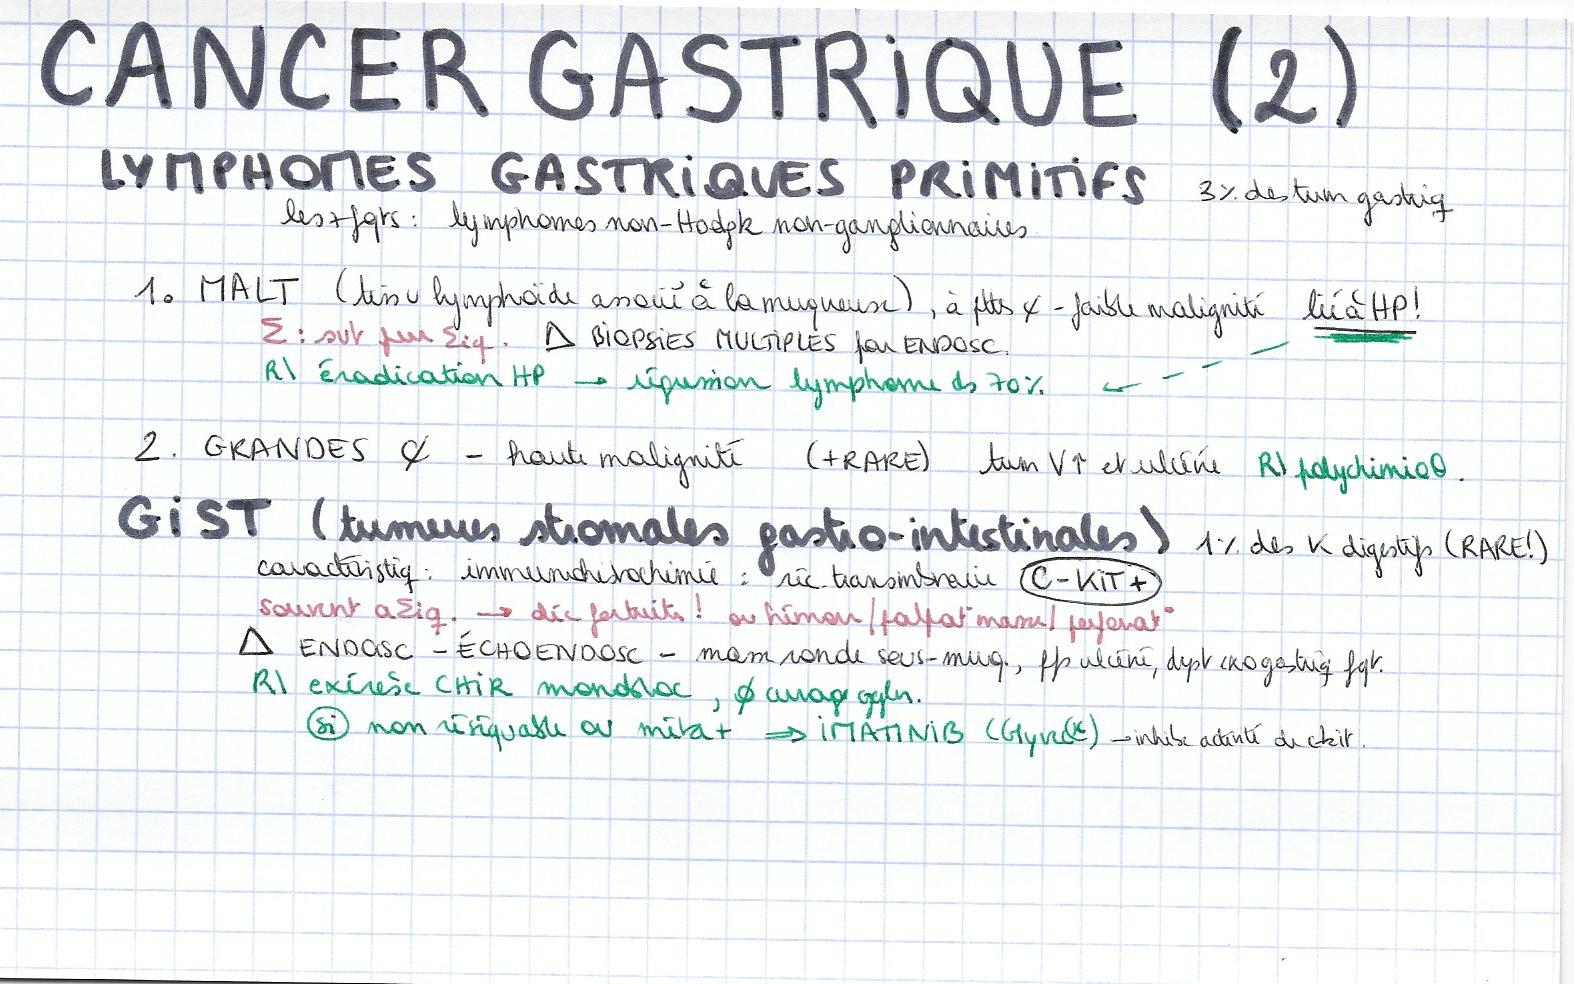 CANCER GASTRIQUE (2)
LYMPHOMES GASTRIQUES PRIMITIFS 3% des tum gastriq
les + fqts : lymphomes non-Hodgk non-ganglionnaires
1. MALT (tissu lymphoïde associé à la muqueuse), à ptts ¢ - faible malignité lié à HP!
Σ : svt peu Σiq. Δ BIOPSIES MULTIPLES par ENDOSC.
R\ éradication HP → régression lymphome ds 70%
2. GRANDES ¢ - haute malignité (+RARE) tum V↑ et ulcérée R\ polychimioθ.
GIST (tumeurs stromales gastro-intestinales) 1% des K digestifs (RARE!)
caractéristiq : immunohistochimie : réc. transmbraire C-KIT+
souvent aΣiq. → déc fortuits! ou hémorr/palpat° masse/perforat°
Δ ENDOSC - ÉCHOENDOSC - masse ronde sous-muq., fp ulcéré, dvpt exogastriq fqt.
R\ exérèse CHIR monobloc, ∅ curage ggln.
si non réséquable ou méta+ ⇒ IMATINIB (Glyvec) → inhibe activité du ckit.